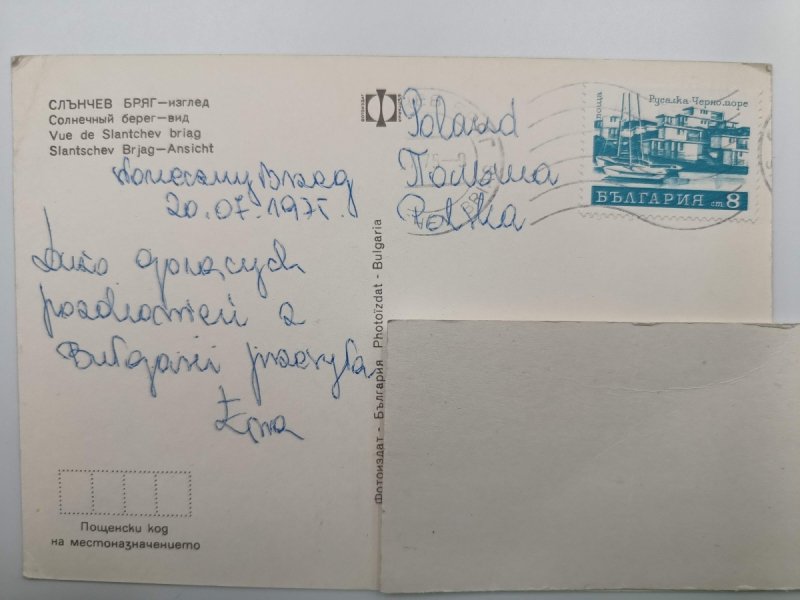 СЛЪНЧЕВ БРЯГ—изглед
Солнечный берег—вид
Vue de Slantchev briag
Slantschev Brjag—Ansicht
Brzeg
20.07.1975.
Dużo gorących
pozdrowień z
Bułgarii przesyła
Poland
Полша
Polska
поща
Русалка Черноморе
БЪЛГАРИЯ ст. 8
Фотоиздат - България Photoïzdat - Bulgaria
Пощенски код
на местоназначението